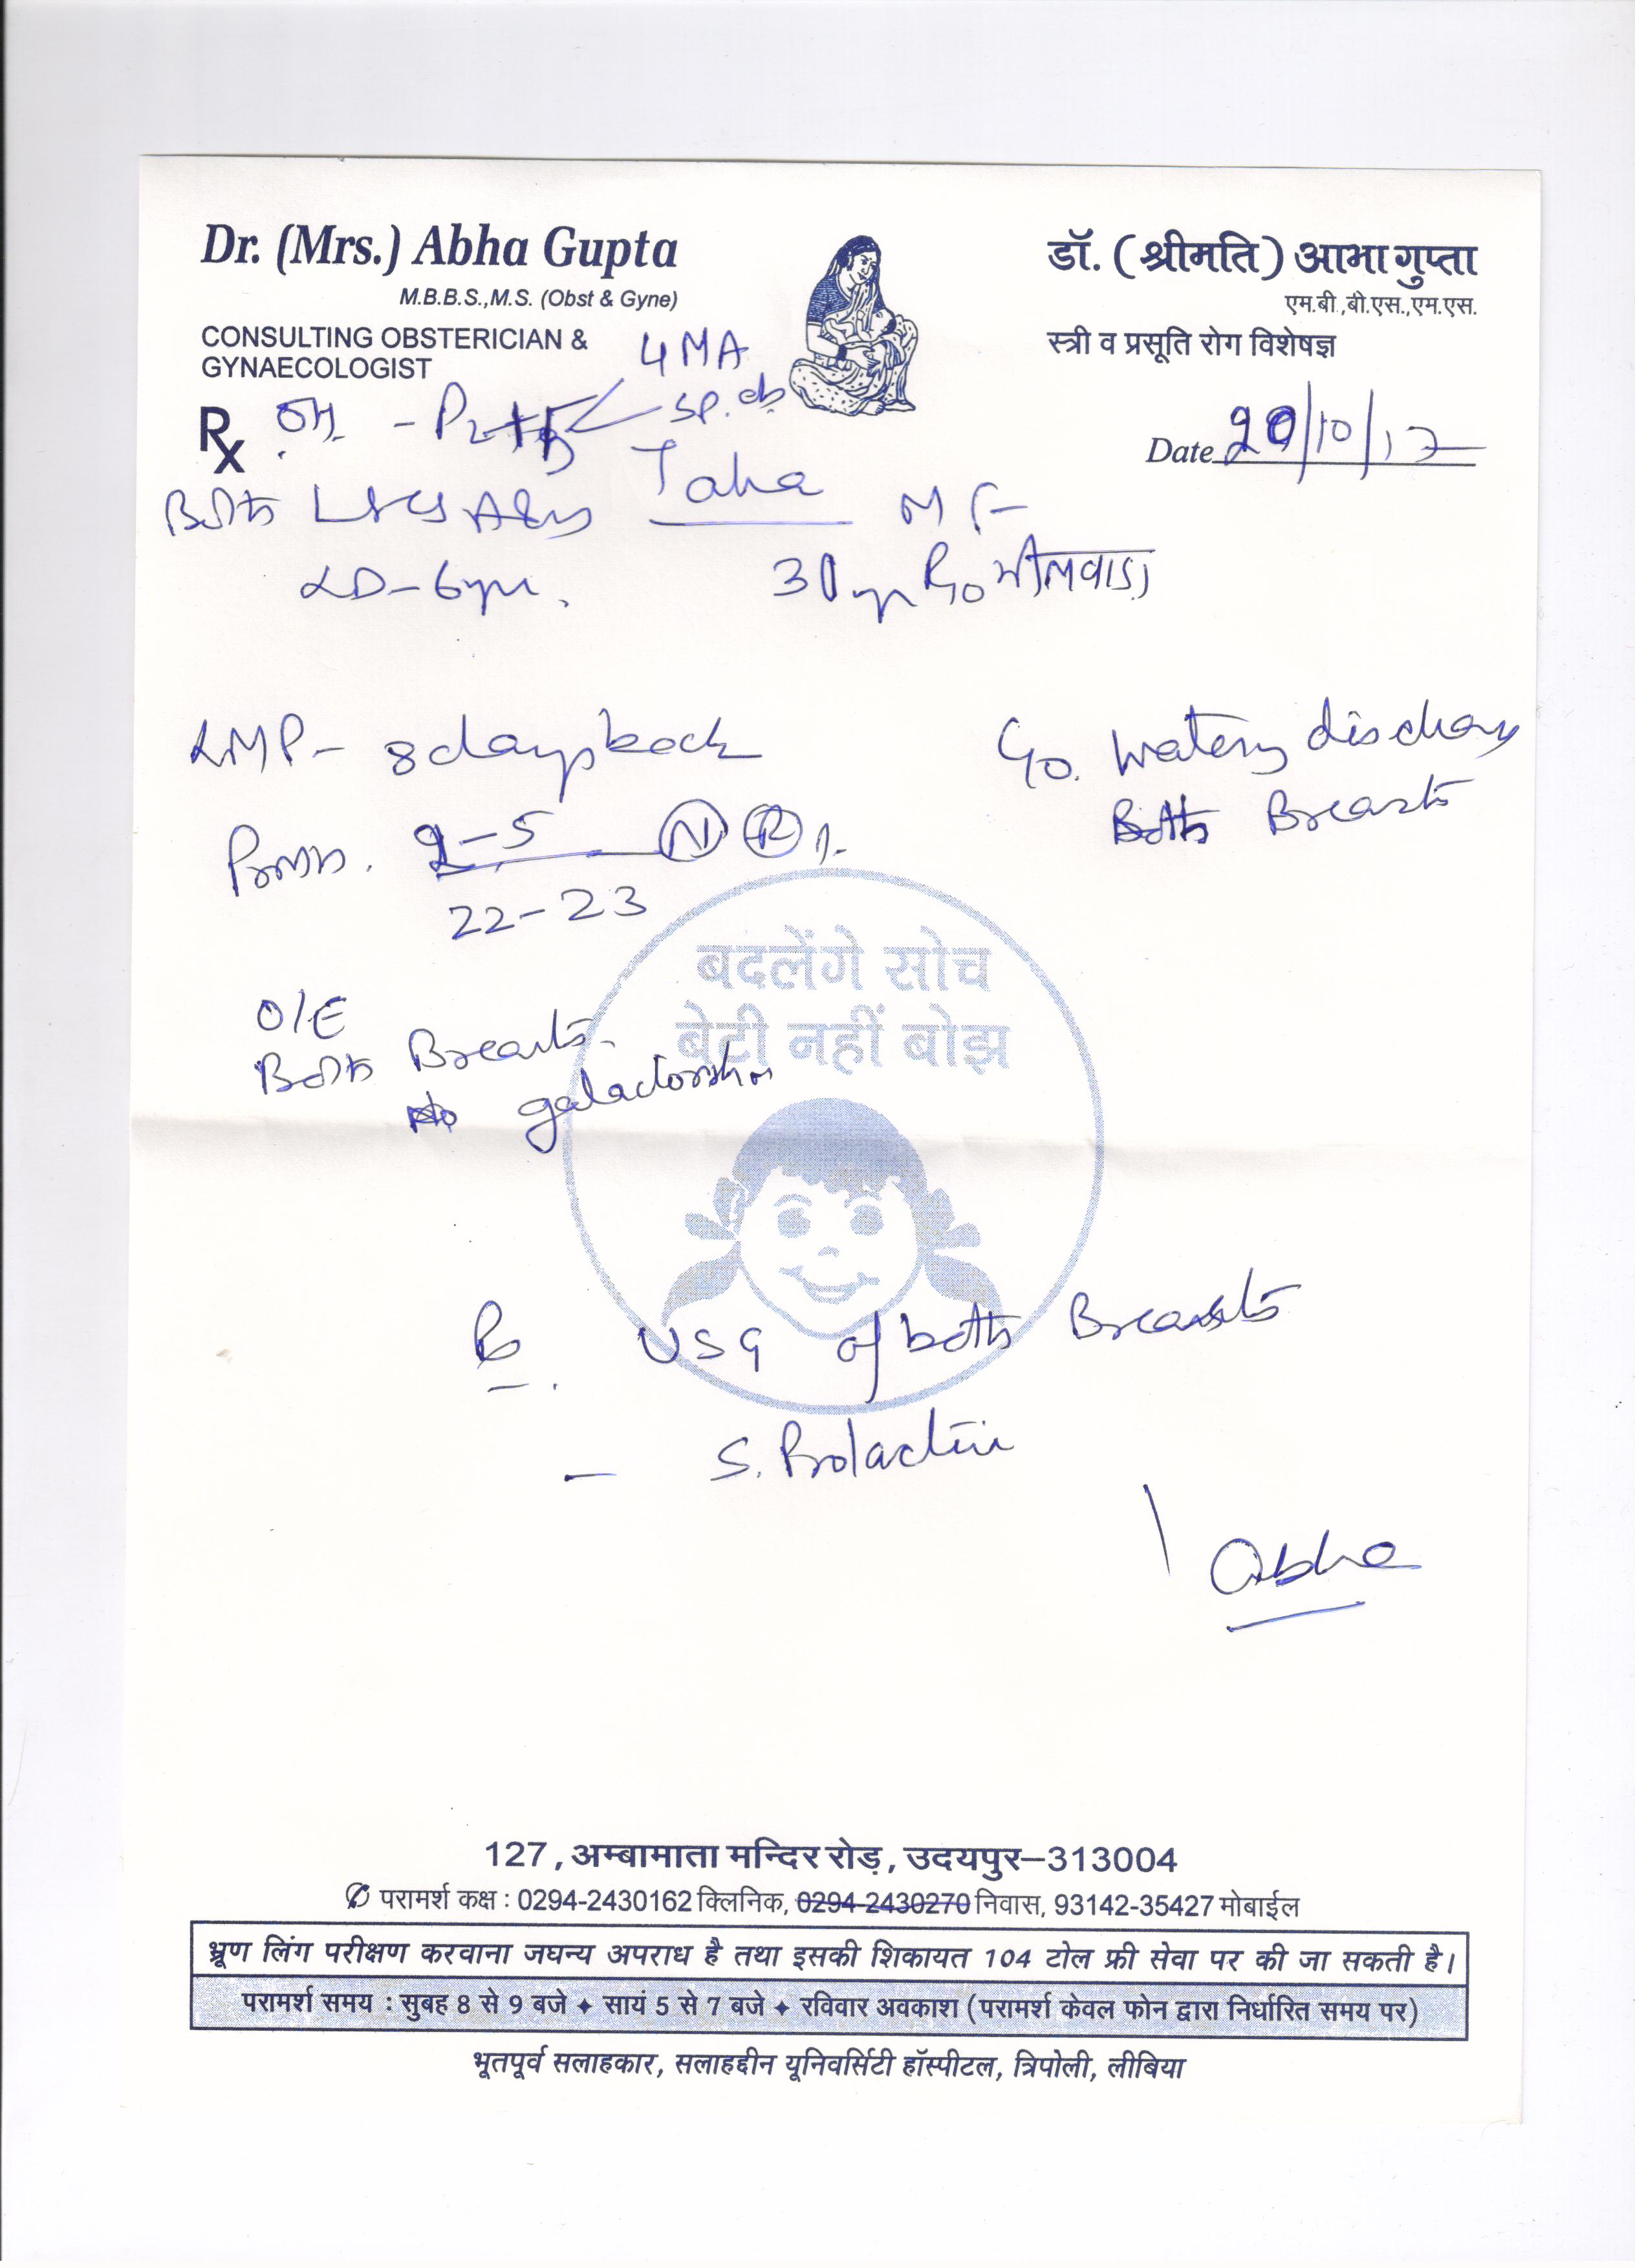 Dr. (Mrs.) Abha Gupta
M.B.B.S.,M.S. (Obst & Gyne)
CONSULTING OBSTERICIAN &
GYNAECOLOGIST
डॉ. (श्रीमति) आभा गुप्ता
एम.बी.,बी.एस.,एम.एस.
स्त्री व प्रसूति रोग विशेषज्ञ
4 MA
Rx OH. - P2+
sp. ab
Date 20/10/17
Both LSCS
Taha M F-
LD- 6yr.
30yr R/o भीलवाड़ा
LMP- 8 days back
C/o. Watery discharge
Both Breasts
2-5 N R
22-23
बदलेंगे सोच
बेटी नहीं बोझ
O/E
Both Breasts-
No galactorrhoea
USG of both Breasts
- S. Prolactin
Abha
127, अम्बामाता मन्दिर रोड़, उदयपुर–313004
✆ परामर्श कक्ष : 0294-2430162 क्लिनिक, 0294-2430270 निवास, 93142-35427 मोबाईल
भ्रूण लिंग परीक्षण करवाना जघन्य अपराध है तथा इसकी शिकायत 104 टोल फ्री सेवा पर की जा सकती है।
परामर्श समय : सुबह 8 से 9 बजे ✦ सायं 5 से 7 बजे ✦ रविवार अवकाश (परामर्श केवल फोन द्वारा निर्धारित समय पर)
भूतपूर्व सलाहकार, सलाहद्दीन यूनिवर्सिटी हॉस्पीटल, त्रिपोली, लीबिया